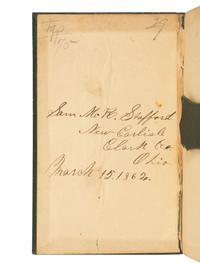 29
Sam Mc K. Stafford
New Carlisle
Clark Co
Ohio
March 15. 1862.